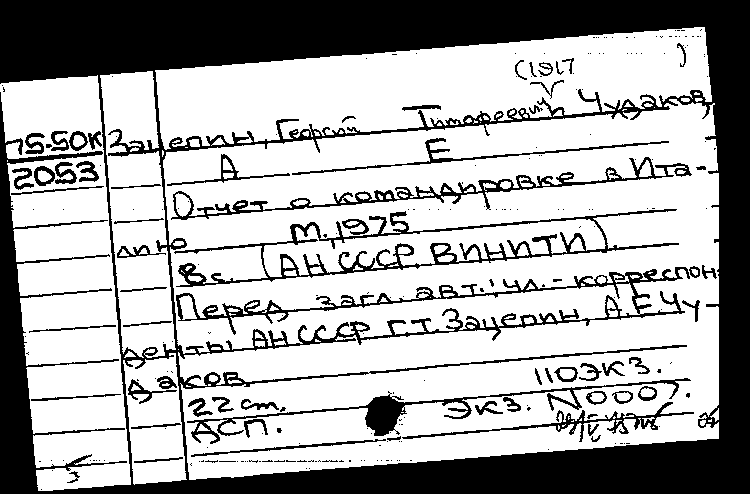 (1917 )
75-50К Зацепин, Георгий Тимофеевич Чудаков,
2053 А Е
Отчет о командировке в Ита-
лию. М., 1975
8с. (АН СССР. ВИНИТИ).
Перед загл. авт.: чл.-корреспон-
денты АН СССР Г.Т. Зацепин, А.Е. Чу-
даков.
22 cm. 110 экз.
ДСП. Экз. N0007.